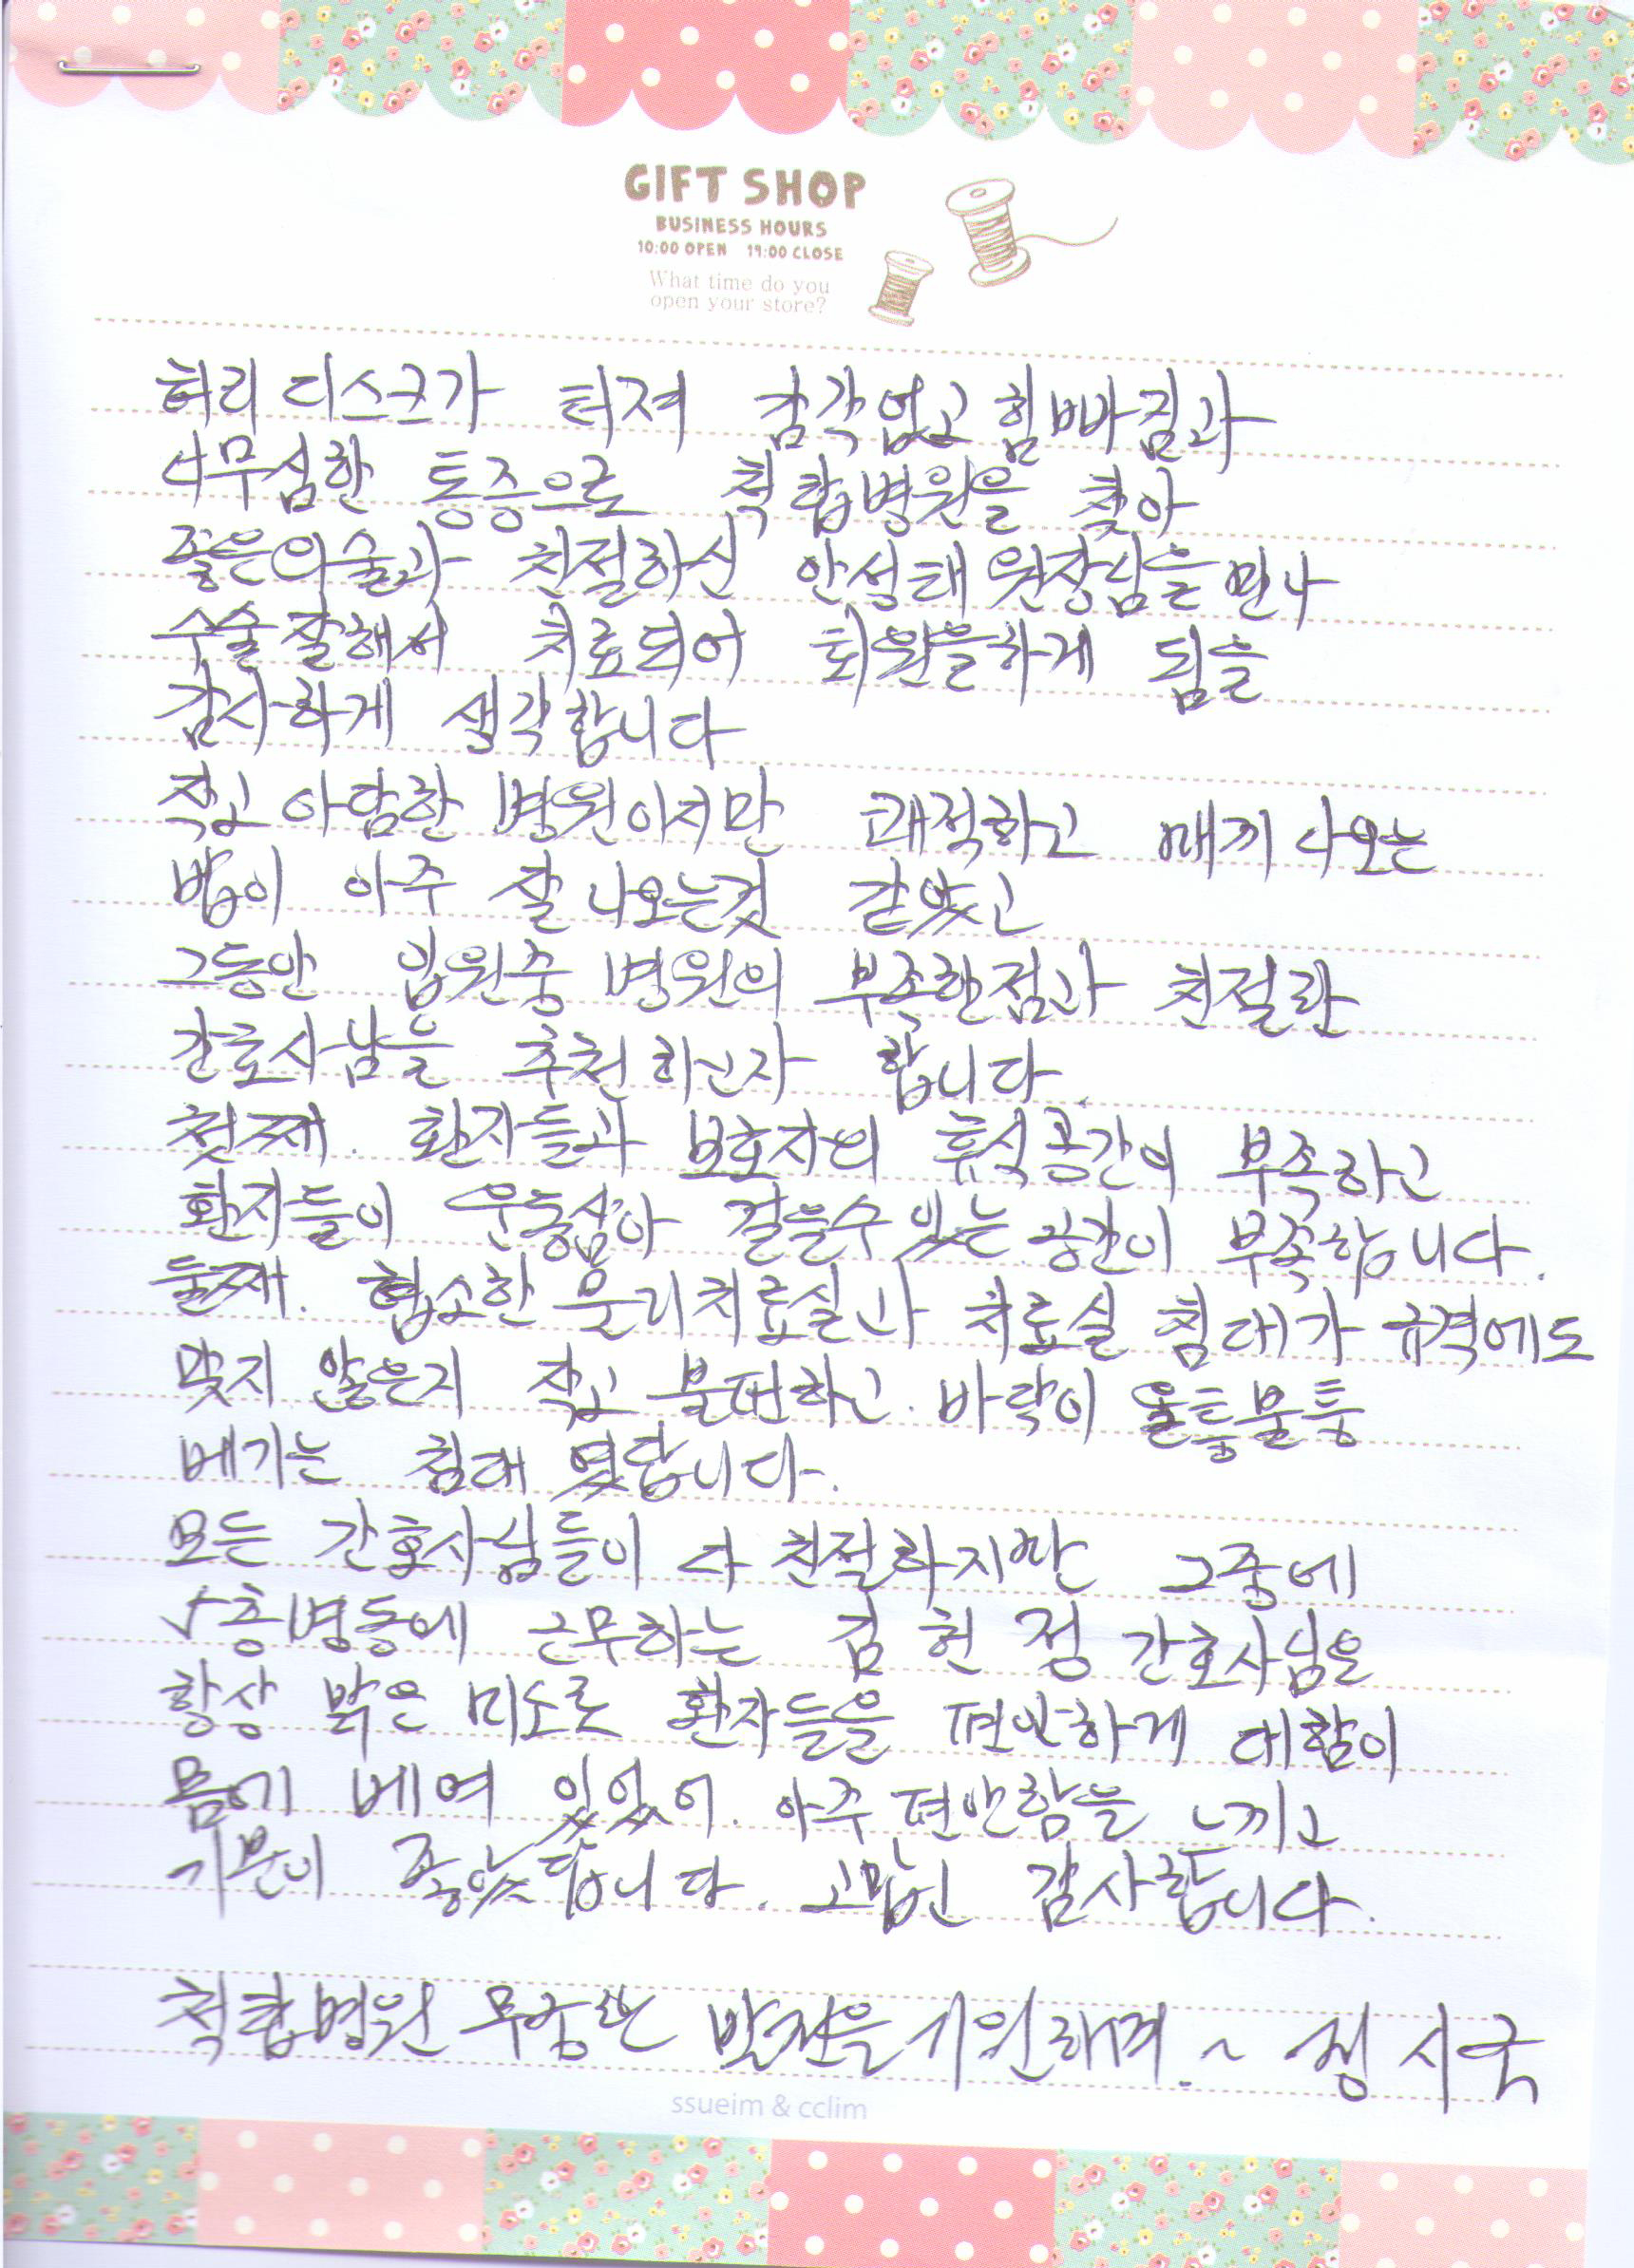 GIFT SHOP
BUSINESS HOURS
10:00 OPEN 19:00 CLOSE
What time do you
open your store?
허리 디스크가 터져 감각없고 힘빠짐과
너무심한 통증으로 척탑병원을 찾아
좋은의술과 친절하신 안성태 원장님을 만나
수술잘해서 치료되어 퇴원을하게 됨을
감사하게 생각합니다
작고 아담한 병원이지만 쾌적하고 매끼 나오는
밥이 아주 잘 나오는것 같았고
그동안 입원중 병원의 부족한점과 친절한
간호사님을 추천하고자 합니다.
첫째. 환자들과 보호자의 휴식공간이 부족하고
환자들이 운동삼아 걸을수 있는 공간이 부족합니다.
둘째. 협소한 물리치료실과 치료실 침대가 규격에도
맞지 않은지 작고 불편하고. 바닥이 울퉁불퉁
베기는 침대 였답니다.
모든 간호사님들이 다 친절하지만 그중에
5층병동에 근무하는 김현정 간호사님은
항상 밝은 미소로 환자들을 편안하게 대함이
몸에 베여 있었어. 아주 편안함을 느끼고
기분이 좋았답니다. 고맙고 감사합니다.
척탑병원 무궁한 발전을 기원하며.~ 정시국
ssueim & cclim